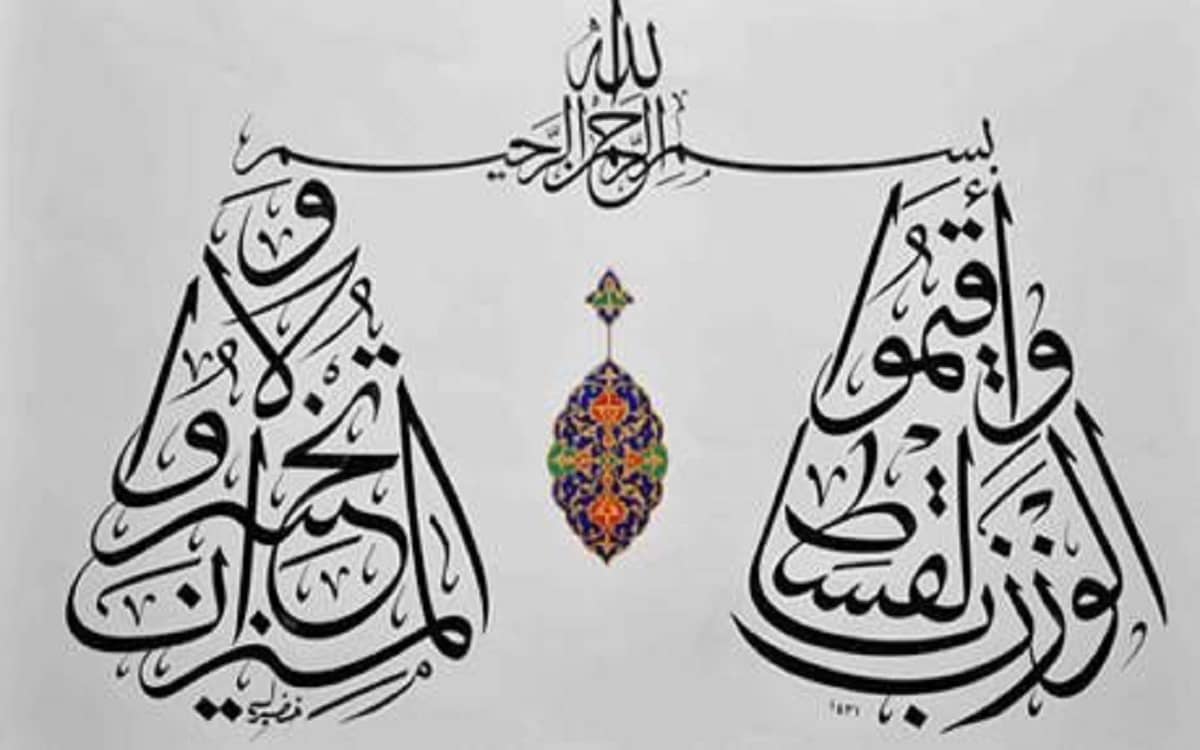 بسم الله الرحمن الرحيم
وأقيموا
الوزن بالقسط
ولا
تخسروا
الميزان
١٤٣١